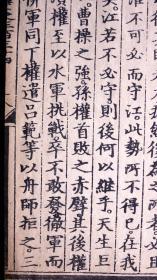 淮不可必而守江此勢所不得已在我
江若不必守則後何以繼乎天生巨
曹操之強孫權首敗之赤壁其後權
須權至以水軍挑戰卒不敢發徹軍而
將軍同下權遣呂範等以舟師拒之三